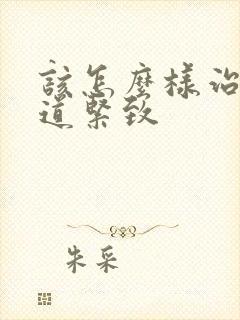 該怎麼樣治
道緊致
朱采